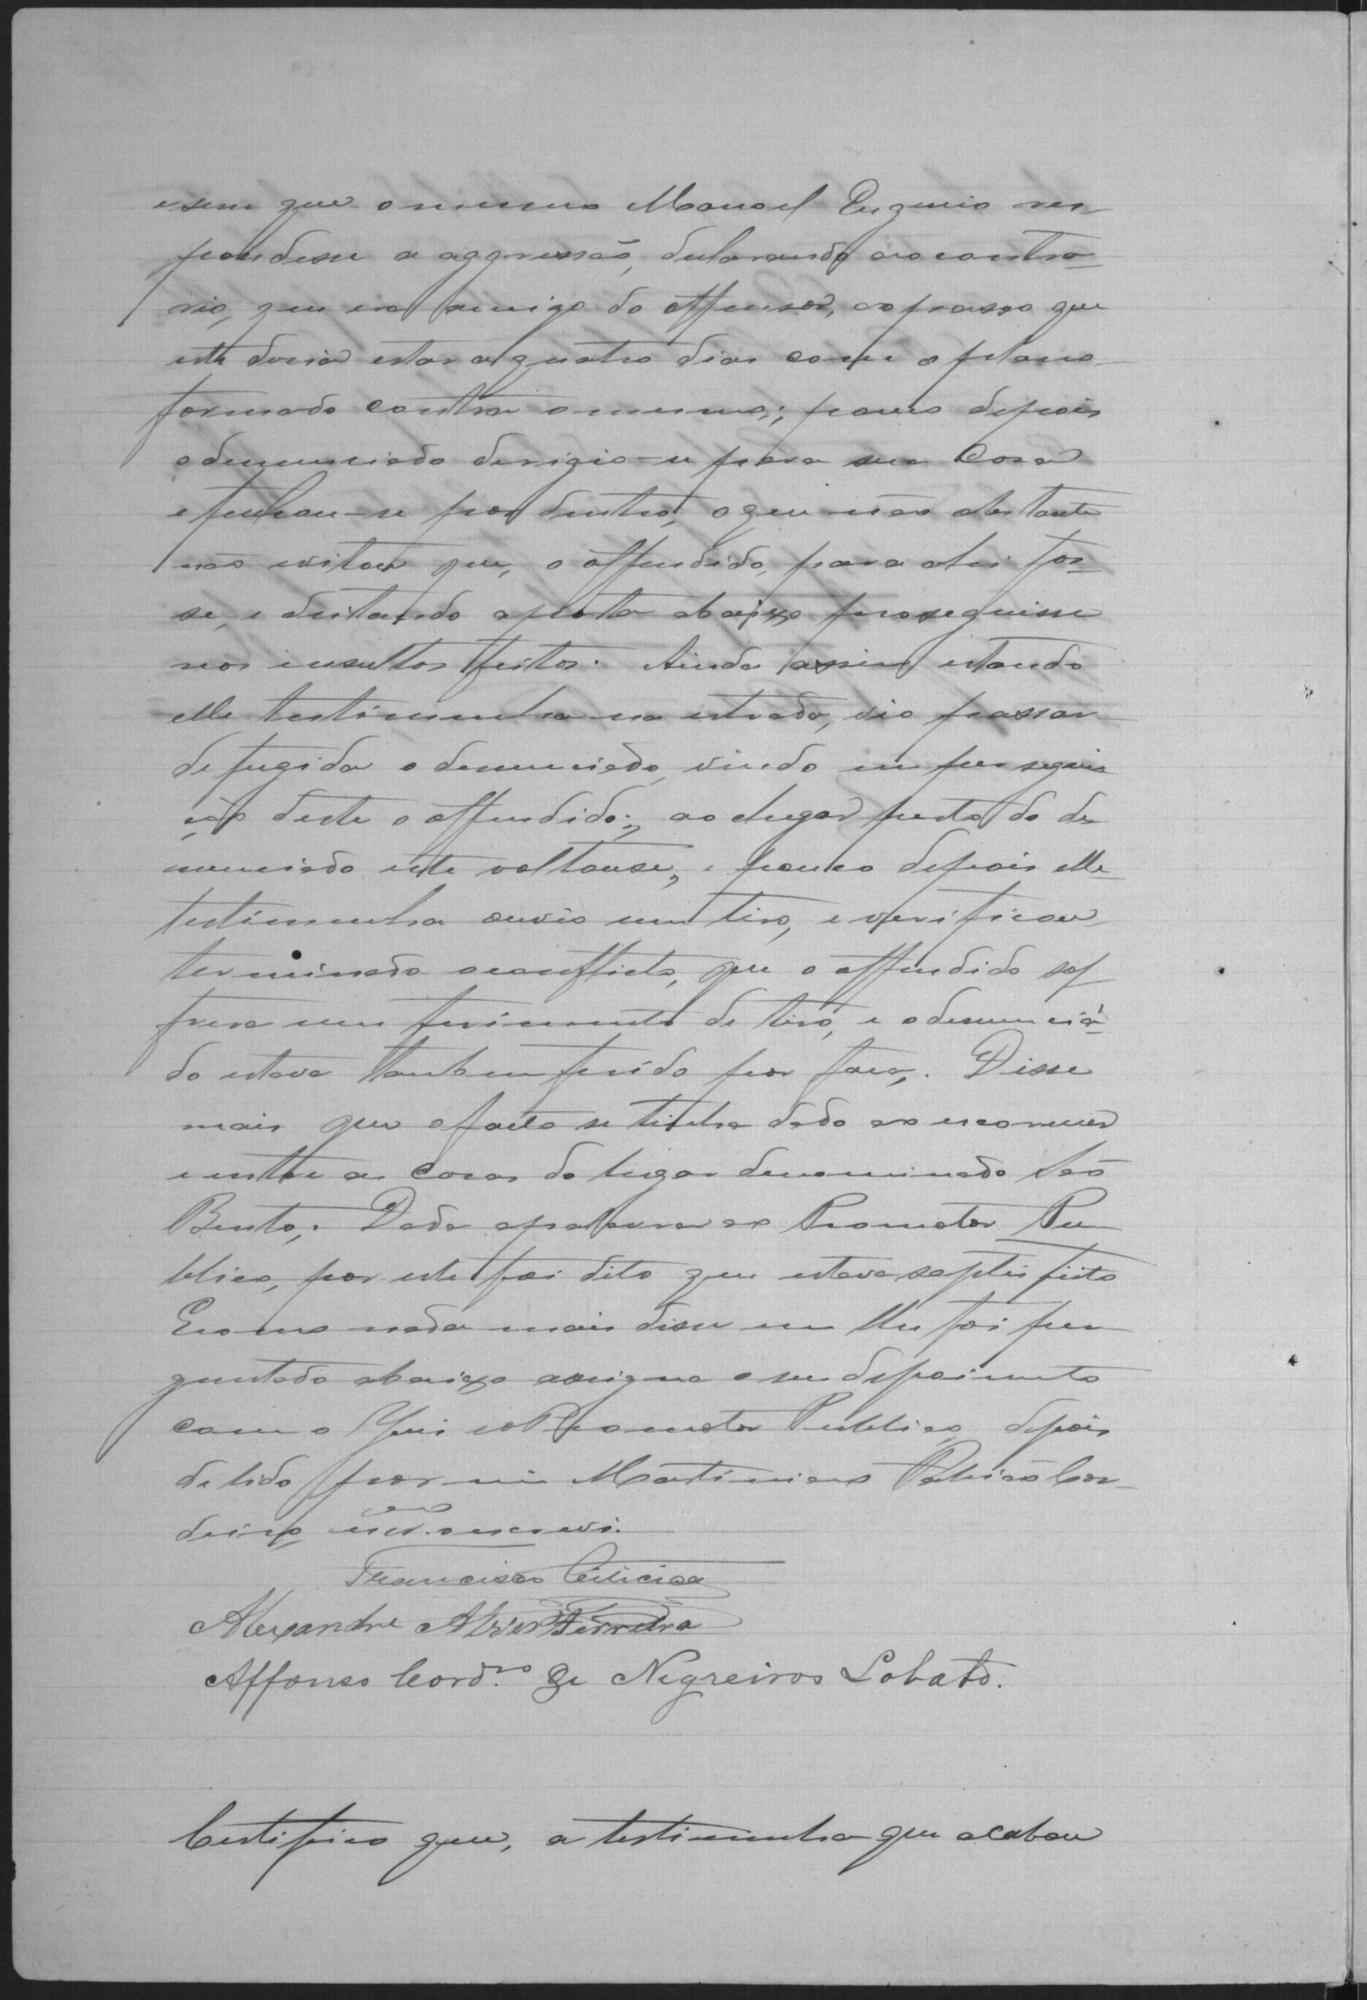 e sem que o mesmo Manoel Eugenio res-
pondesse a aggressão, declarando ao contra-
rio, que era amigo do offensor, ao passo que
este devia estar a quatro dias com o plano
formado contra o mesmo; pouco depois
o denunciado derigio-se para sua Casa
e fechou-se por dentro, o que não obstante
não evitou que, o offendido, para ahi fos-
se, e deitando a porta abaixo proseguisse
nos insultos feitos. Ainda assim estando
elle testimunha na estrada, vio passar
de fugida o denunciado, vindo em persegui
ção deste o offendido; ao chegar perto do de
nunciado este voltouse, e pouco depois elle
testimunha ouvio um tiro, e verificou
terminado o conflicto, que o offendido sof
frera um ferimento de tiro, e o denuncia-
do estava tambem ferido por faca. Disse
mais que o facto se tinha dado ao escurecer
e entre as casas do lugar denominado São
Bento. Dada a palavra ao Promotor Pu
blico, por este foi dito que estava saptisfeito
E como nada mais disse nem lhe foi per
guntado abaixo assigna o seu depoimento
com o Juis e o Promotor Publico, depois
de lido por mim Martiniano Ribeiro Cor-
deiro, escrivam o escrevi.
Francisco
Alexandre Alves Ferreira
Affonso Cord.ro de Negreiros Lobato.
Certifico que, a testimunha que acabou